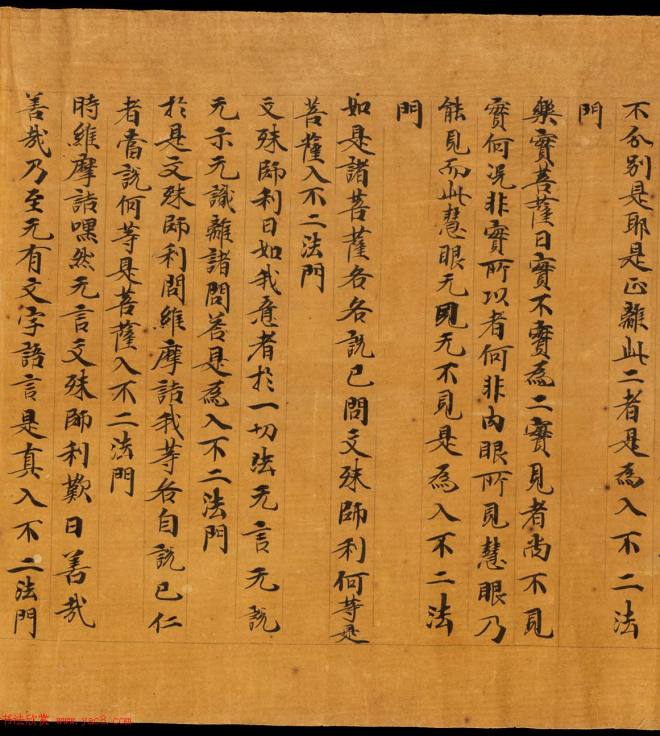 不分别是耶是正離此二者是為入不二法
門
樂實菩薩曰實不實為二實見者尚不見
實何况非實所以者何非肉眼所見慧眼乃
能見而此慧眼无見无不見是為入不二法
門
如是諸菩薩各各說已問文殊師利何等是
菩薩入不二法門
文殊師利曰如我意者於一切法无言无說
无示无識離諸問荅是為入不二法門
於是文殊師利問維摩詰我等各自說已仁
者當說何等是菩薩入不二法門
時維摩詰嘿然无言文殊師利歎曰善哉
善哉乃至无有文字語言是真入不二法門
书法欣赏 www.yac8.com